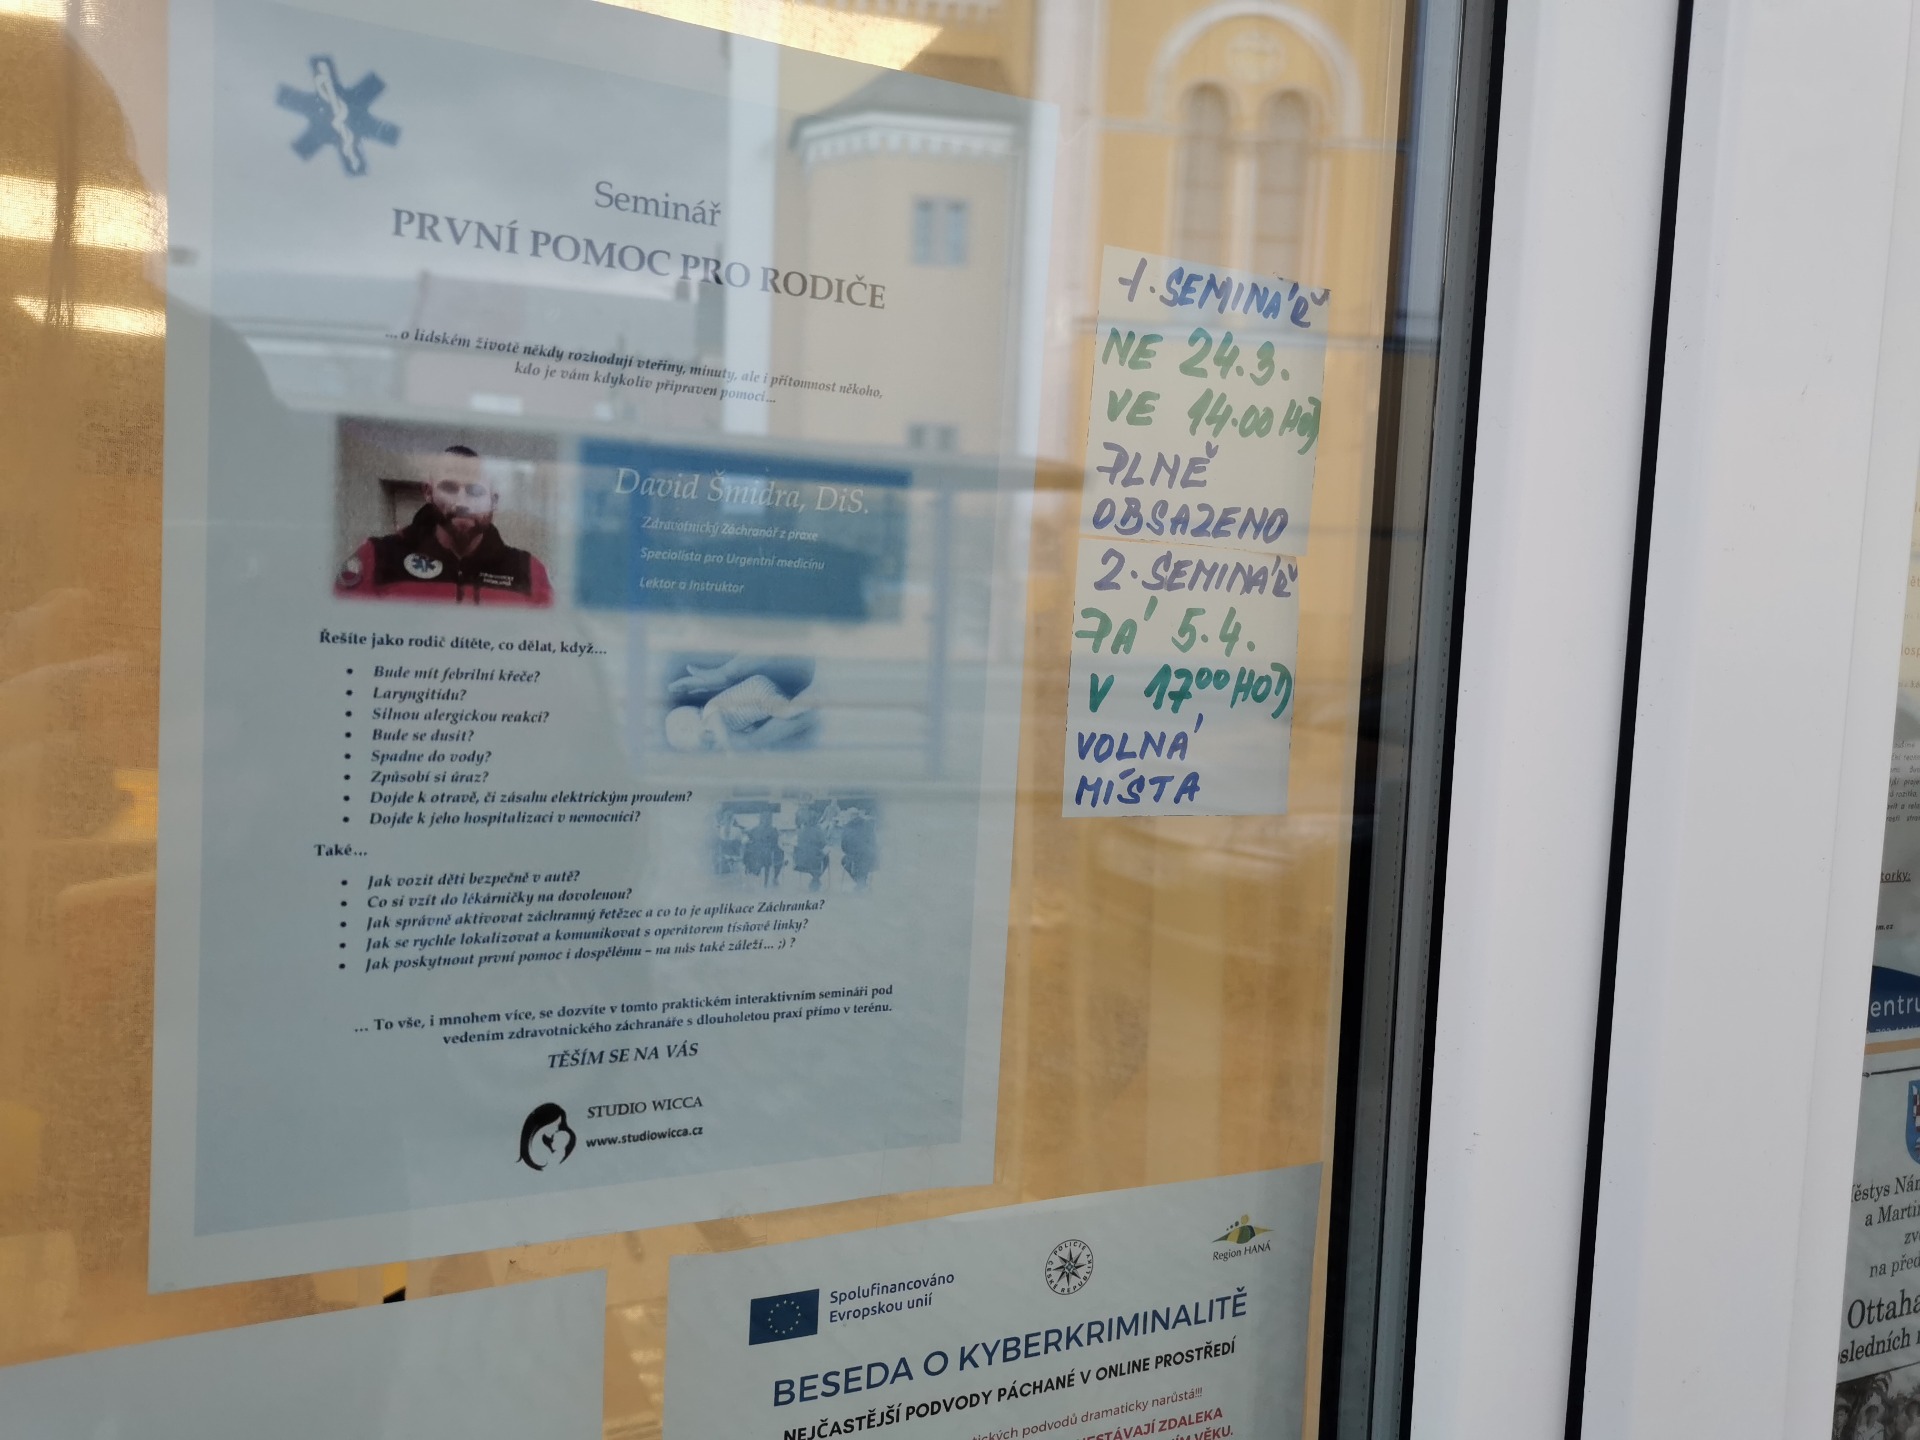 Seminář
PRVNÍ POMOC PRO RODIČE
...o lidském životě někdy rozhodují vteřiny, minuty, ale i přítomnost někoho,
kdo je vám kdykoliv připraven pomoci...
David Šmidra, DiS.
Zdravotnický Záchranář z praxe
Specialista pro Urgentní medicínu
Lektor a Instruktor
Řešíte jako rodič dítěte, co dělat, když...
• Bude mít febrilní křeče?
• Laryngitidu?
• Silnou alergickou reakci?
• Bude se dusit?
• Spadne do vody?
• Způsobí si úraz?
• Dojde k otravě, či zásahu elektrickým proudem?
• Dojde k jeho hospitalizaci v nemocnici?
Také...
• Jak vozit děti bezpečně v autě?
• Co si vzít do lékárničky na dovolenou?
• Jak správně aktivovat záchranný řetězec a co to je aplikace Záchranka?
• Jak se rychle lokalizovat a komunikovat s operátorem tísňové linky?
• Jak poskytnout první pomoc i dospělému – na nás také záleží... ;) ?
... To vše, i mnohem více, se dozvíte v tomto praktickém interaktivním semináři pod
vedením zdravotnického záchranáře s dlouholetou praxí přímo v terénu.
TĚŠÍM SE NA VÁS
STUDIO WICCA
www.studiowicca.cz
1. SEMINÁŘ
NE 24.3.
VE 14.00 HOD
PLNĚ
OBSAZENO
2. SEMINÁŘ
PÁ 5.4.
V 17⁰⁰ HOD
VOLNÁ
MÍSTA
Spolufinancováno
Evropskou unií
POLICIE
ČESKÉ REPUBLIKY
Region HANÁ
BESEDA O KYBERKRIMINALITĚ
NEJČASTĚJŠÍ PODVODY PÁCHANÉ V ONLINE PROSTŘEDÍ
podvodů dramaticky narůstá!!!
ZDALEKA
VĚKU.
a
na
Ottaha